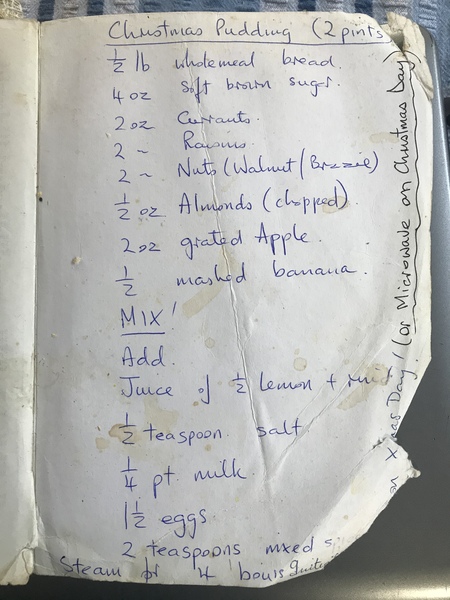 Christmas Pudding (2 pints
½ lb wholemeal bread.
4 oz soft brown sugar.
2 oz Currants.
2 ~ Raisins
2 ~ Nuts (Walnut/Brazzil)
½ oz Almonds (chopped)
2oz grated Apple.
½ mashed banana.
MIX!
Add.
Juice of ½ Lemon +
½ teaspoon salt
¼ pt. milk.
1½ eggs
2 teaspoons mxed s
Steam for 4 hours
on Xmas Day! (or Microwave on Christmas Day)